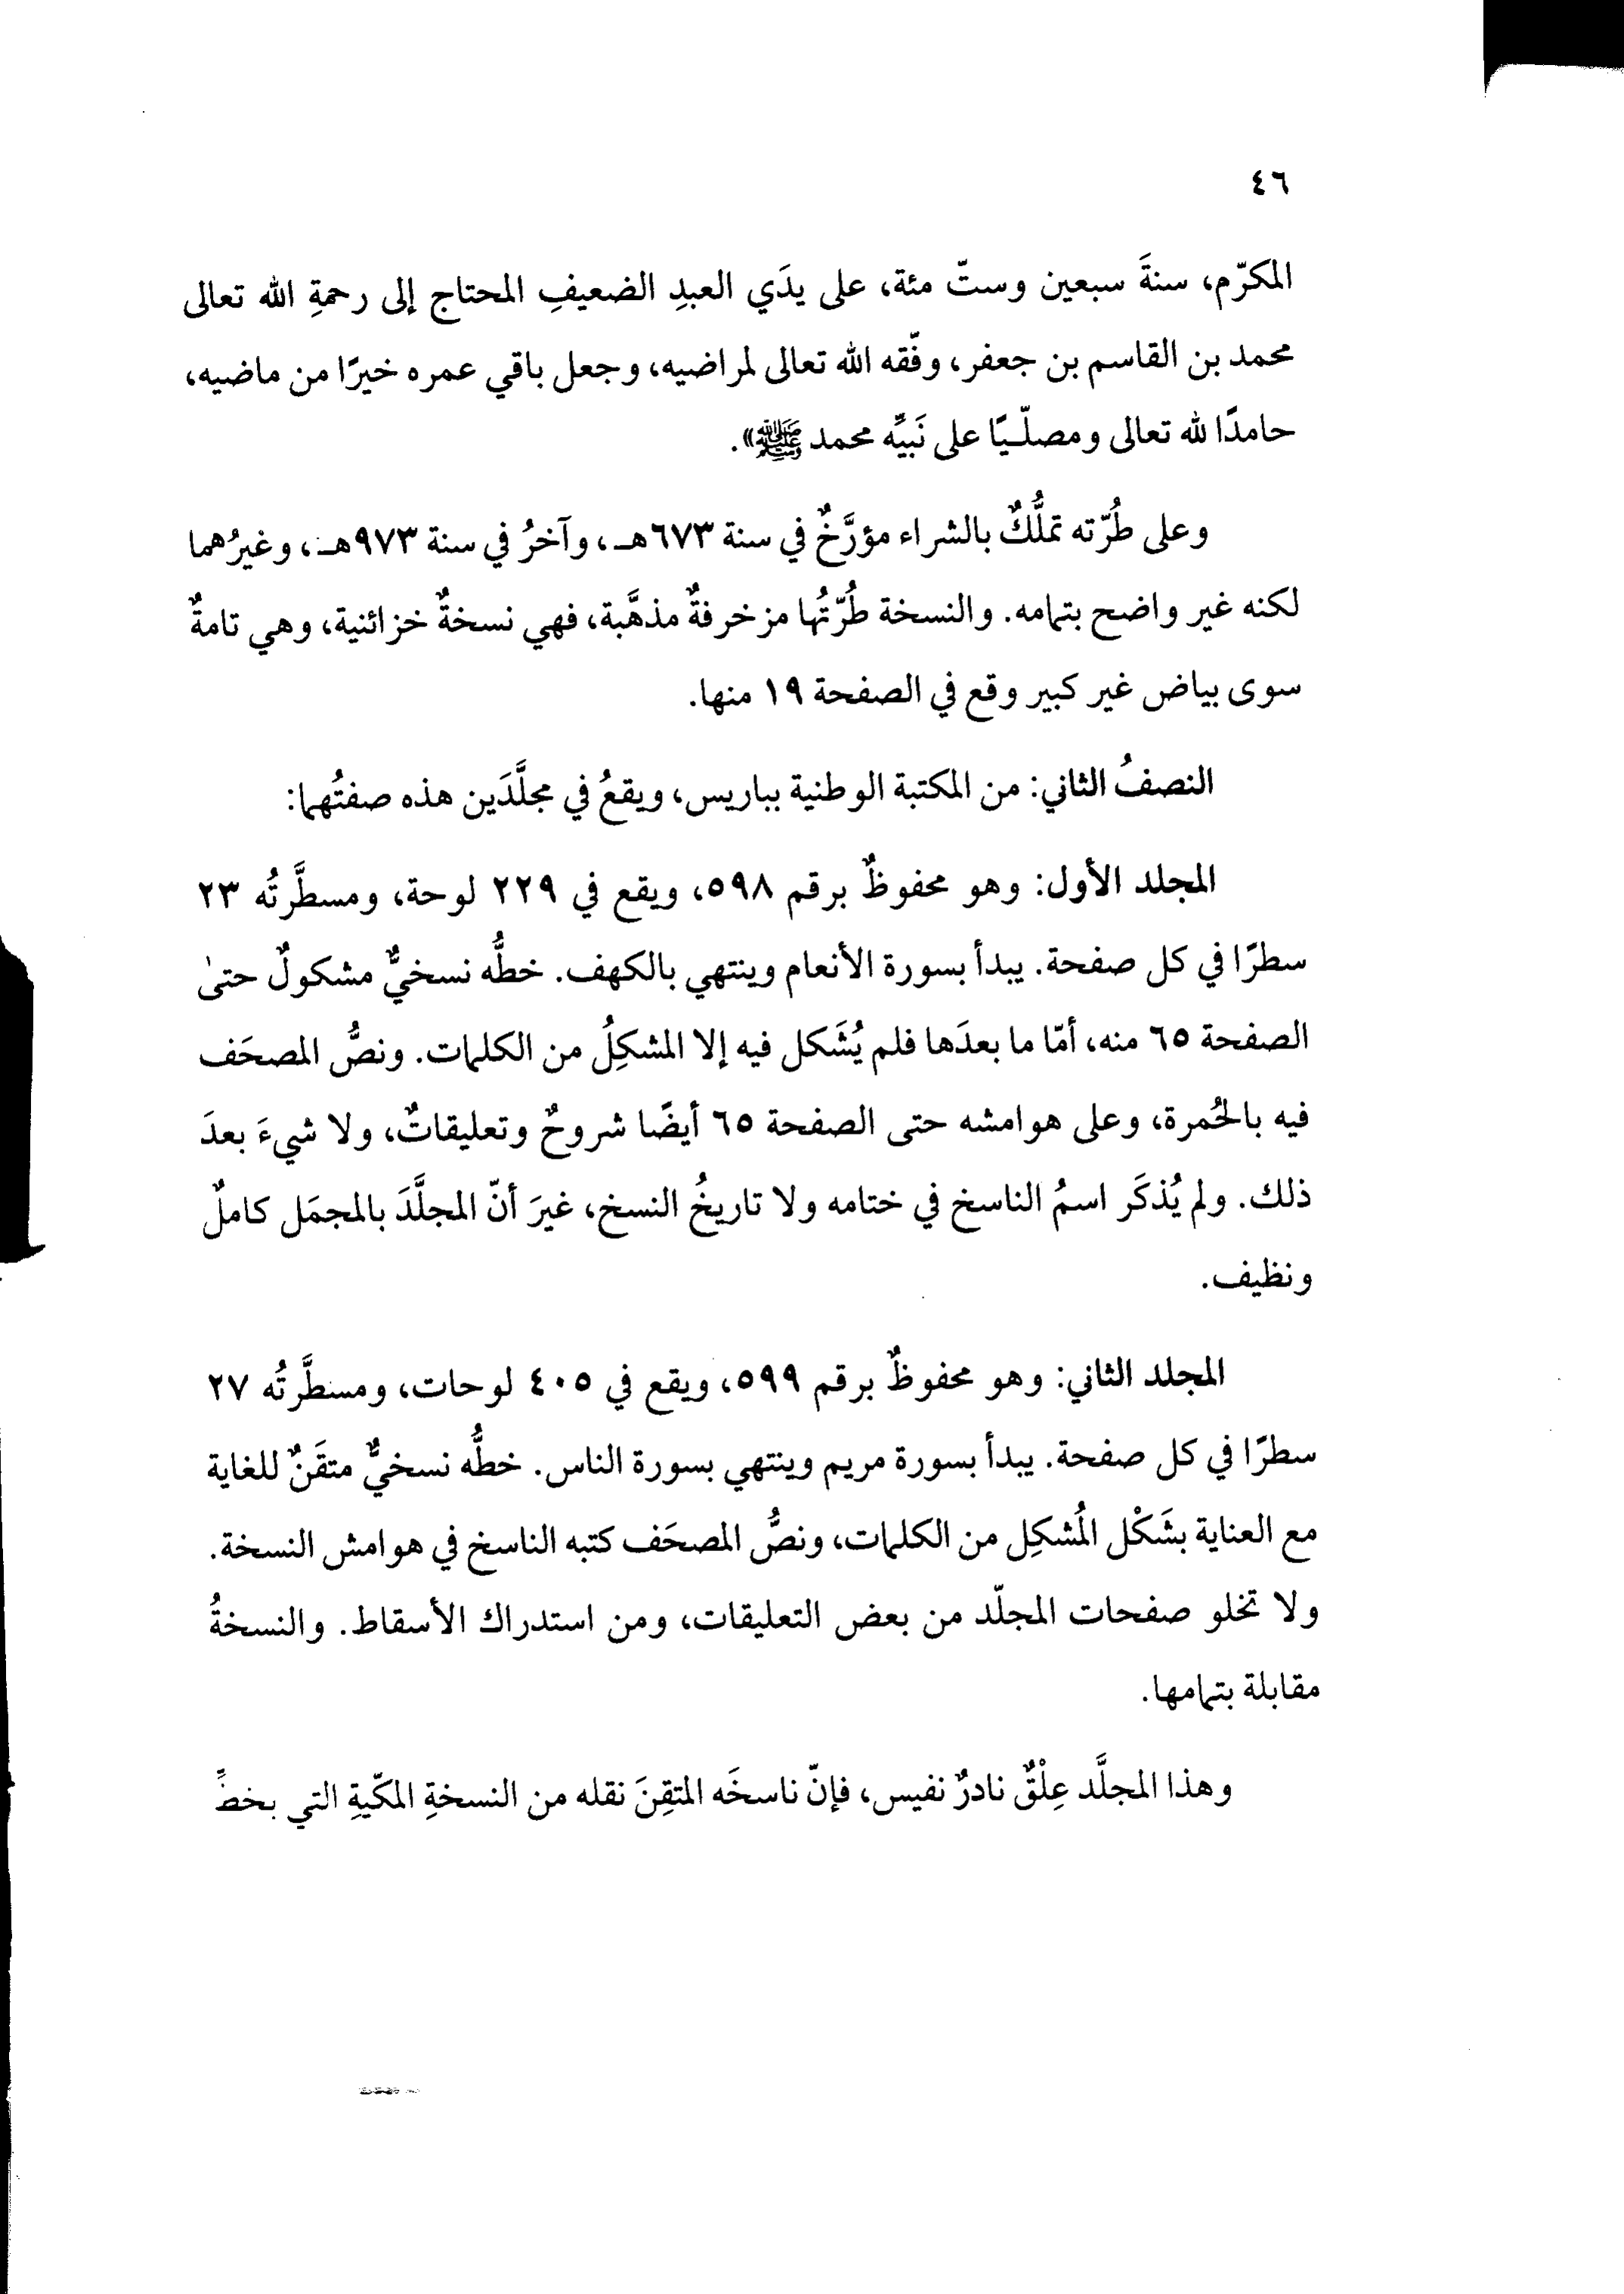 ٤٦
المكرّم، سنةَ سبعين وستّ مئة، على يدَي العبدِ الضعيفِ المحتاج إلى رحمةِ الله تعالى
محمد بن القاسم بن جعفر، وفّقه الله تعالى لمراضيه، وجعل باقي عمره خيرًا من ماضيه،
حامدًا لله تعالى ومصلّـيًا على نَبيِّه محمد ﷺ».
وعلى طُرّته تملُّكٌ بالشراء مؤرَّخٌ في سنة ٦٧٣هـ، وآخرُ في سنة ٩٧٣هـ، وغيرُهما
لكنه غير واضح بتمامه. والنسخة طُرّتُها مزخرفةٌ مذهَّبة، فهي نسخةٌ خزائنية، وهي تامةٌ
سوى بياض غير كبير وقع في الصفحة ١٩ منها.
النصفُ الثاني: من المكتبة الوطنية بباريس، ويقعُ في مجلَّدَين هذه صفتُهما:
المجلد الأول: وهو محفوظٌ برقم ٥٩٨، ويقع في ٢٢٩ لوحة، ومسطَّرتُه ٢٣
سطرًا في كل صفحة. يبدأ بسورة الأنعام وينتهي بالكهف. خطُّه نسخيٌّ مشكولٌ حتىٰ
الصفحة ٦٥ منه، أمّا ما بعدَها فلم يُشَكل فيه إلا المشكِلُ من الكلمات. ونصُّ المصحَف
فيه بالحُمرة، وعلى هوامشه حتى الصفحة ٦٥ أيضًا شروحٌ وتعليقاتٌ، ولا شيءَ بعدَ
ذلك. ولم يُذكَر اسمُ الناسخ في ختامه ولا تاريخُ النسخ، غيرَ أنّ المجلَّدَ بالمجمَل كاملٌ
ونظيف.
المجلد الثاني: وهو محفوظٌ برقم ٥٩٩، ويقع في ٤٠٥ لوحات، ومسطَّرتُه ٢٧
سطرًا في كل صفحة. يبدأ بسورة مريم وينتهي بسورة الناس. خطُّه نسخيٌّ متقَنٌ للغاية
مع العناية بشَكْل المُشكِل من الكلمات، ونصُّ المصحَف كتبه الناسخ في هوامش النسخة.
ولا تخلو صفحات المجلّد من بعض التعليقات، ومن استدراك الأسقاط. والنسخةُ
مقابلة بتمامها.
وهذا المجلَّد عِلْقٌ نادرٌ نفيس، فإنّ ناسخَه المتقِنَ نقله من النسخةِ المكّيةِ التي بخطِّ